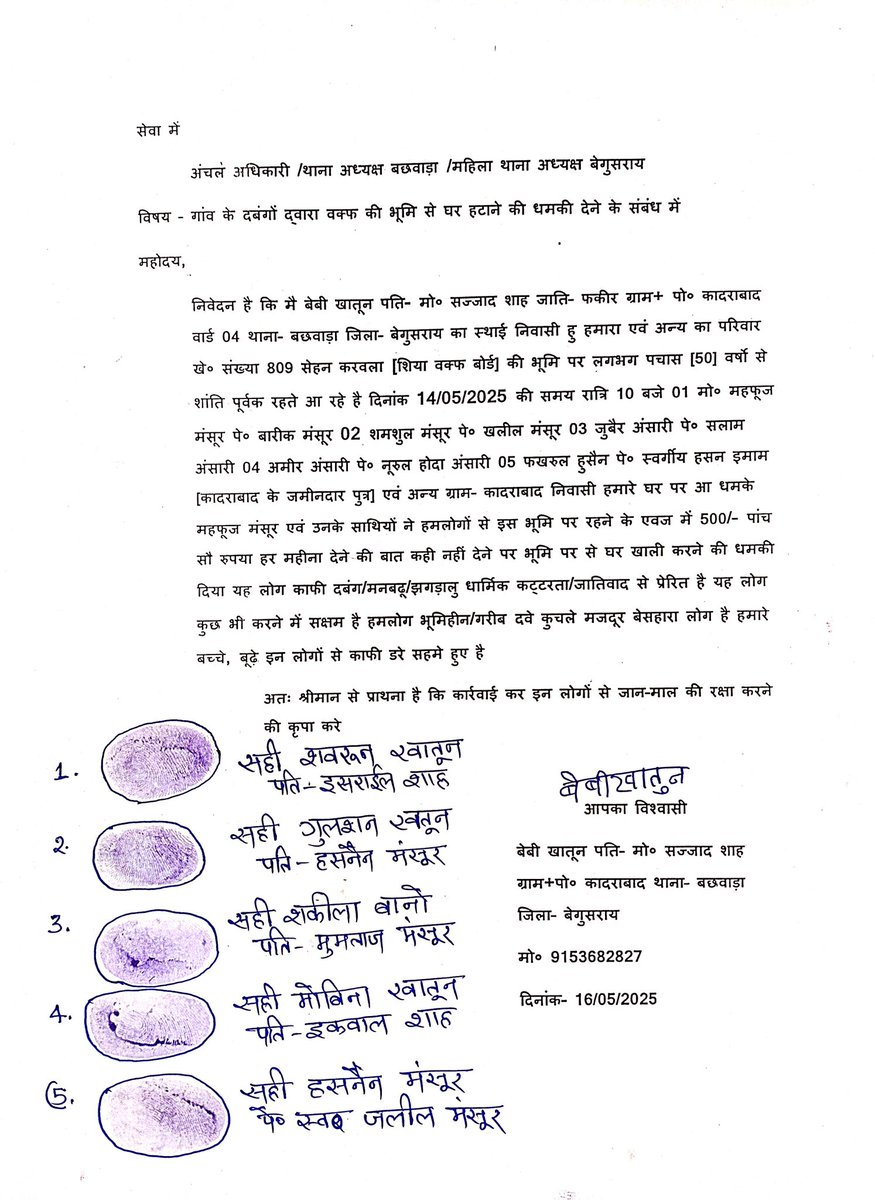 सेवा में
अंचल अधिकारी /थाना अध्यक्ष बछवाड़ा /महिला थाना अध्यक्ष बेगुसराय
विषय - गांव के दबंगों द्वारा वक्फ की भूमि से घर हटाने की धमकी देने के संबंध में
महोदय,
निवेदन है कि मै बेबी खातून पति- मो॰ सज्जाद शाह जाति- फकीर ग्राम+ पो॰ कादराबाद
वार्ड 04 थाना- बछवाड़ा जिला- बेगुसराय का स्थाई निवासी हु हमारा एवं अन्य का परिवार
खे॰ संख्या 809 सेहन करवला [शिया वक्फ बोर्ड] की भूमि पर लगभग पचास [50] वर्षो से
शांति पूर्वक रहते आ रहे है दिनांक 14/05/2025 की समय रात्रि 10 बजे 01 मो॰ महफूज
मंसूर पे॰ बारीक मंसूर 02 शमशुल मंसूर पे॰ खलील मंसूर 03 जुबैर अंसारी पे॰ सलाम
अंसारी 04 अमीर अंसारी पे॰ नूरुल होदा अंसारी 05 फखरुल हुसैन पे॰ स्वर्गीय हसन इमाम
[कादराबाद के जमीनदार पुत्र] एवं अन्य ग्राम- कादराबाद निवासी हमारे घर पर आ धमके
महफूज मंसूर एवं उनके साथियों ने हमलोगों से इस भूमि पर रहने के एवज में 500/- पांच
सौ रुपया हर महीना देने की बात कही नहीं देने पर भूमि पर से घर खाली करने की धमकी
दिया यह लोग काफी दबंग/मनबढू/झगड़ालु धार्मिक कट्टरता/जातिवाद से प्रेरित है यह लोग
कुछ भी करने में सक्षम है हमलोग भूमिहीन/गरीब दवे कुचले मजदूर बेसहारा लोग है हमारे
बच्चे, बूढ़े इन लोगों से काफी डरे सहमे हुए है
अतः श्रीमान से प्राथना है कि कार्रवाई कर इन लोगों से जान-माल की रक्षा करने
की कृपा करे
1. सही शवरून खातून
पति- इसराईल शाह
2. सही गुलशन खतून
पति- हसनैन मंसूर
3. सही शकीला वानो
पति- मुमताज मंसूर
4. सही मोबिना खातून
पति- इकवाल शाह
5. सही हसनैन मंसूर
पे॰ स्व॰ जलील मंसूर
बेबीखातुन
आपका विश्वासी
बेबी खातून पति- मो॰ सज्जाद शाह
ग्राम+पो॰ कादराबाद थाना- बछवाड़ा
जिला- बेगुसराय
मो॰ 9153682827
दिनांक- 16/05/2025